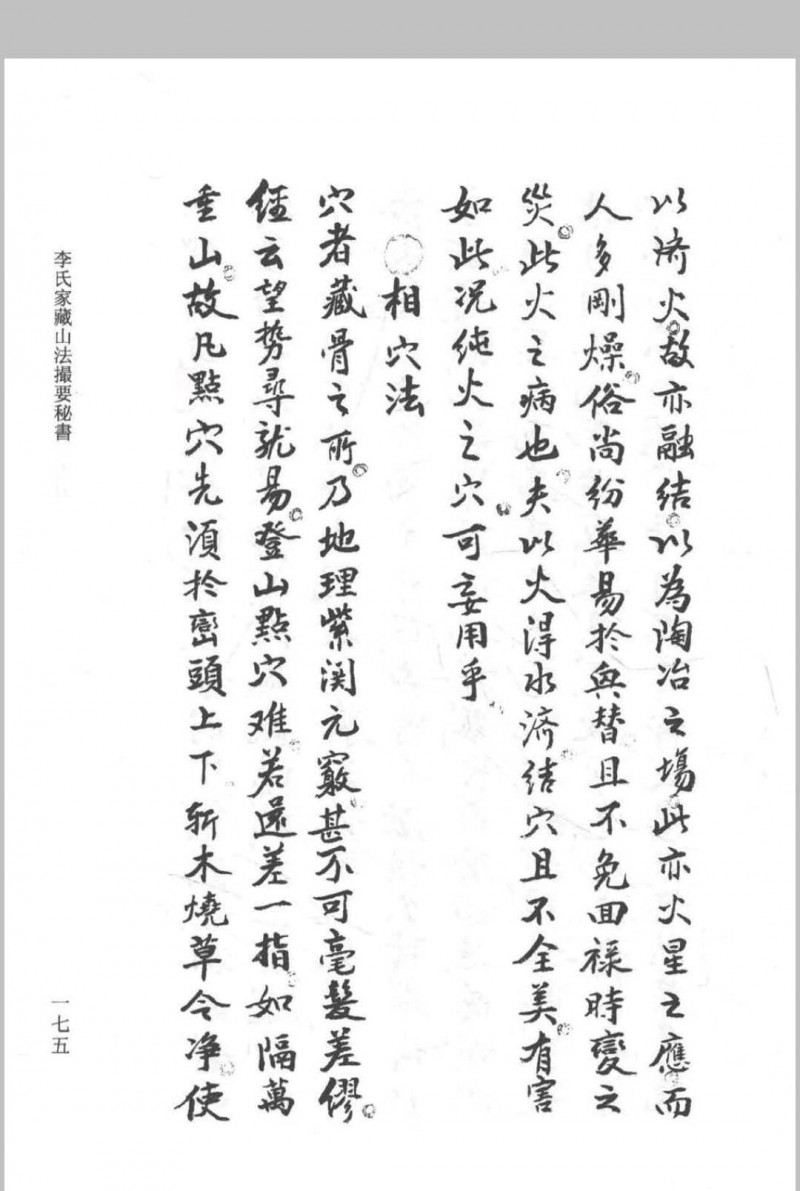 以济火故亦融結以為陶冶之場此亦火星之應而
人多剛燥俗尚紛華易扵興替且不免回祿時變之
災此火之病也夫以火得水济結穴且不全美有害
如此况純火之穴可妄用乎
相穴法
穴者藏骨之所乃地理紫関元竅甚不可毫髮差繆
經云望勢尋龙易登山點穴难若還差一指如隔萬
重山故凡點穴先須扵巒頭上下斩木燒草令净使
李氏家藏山法撮要秘書
一七五